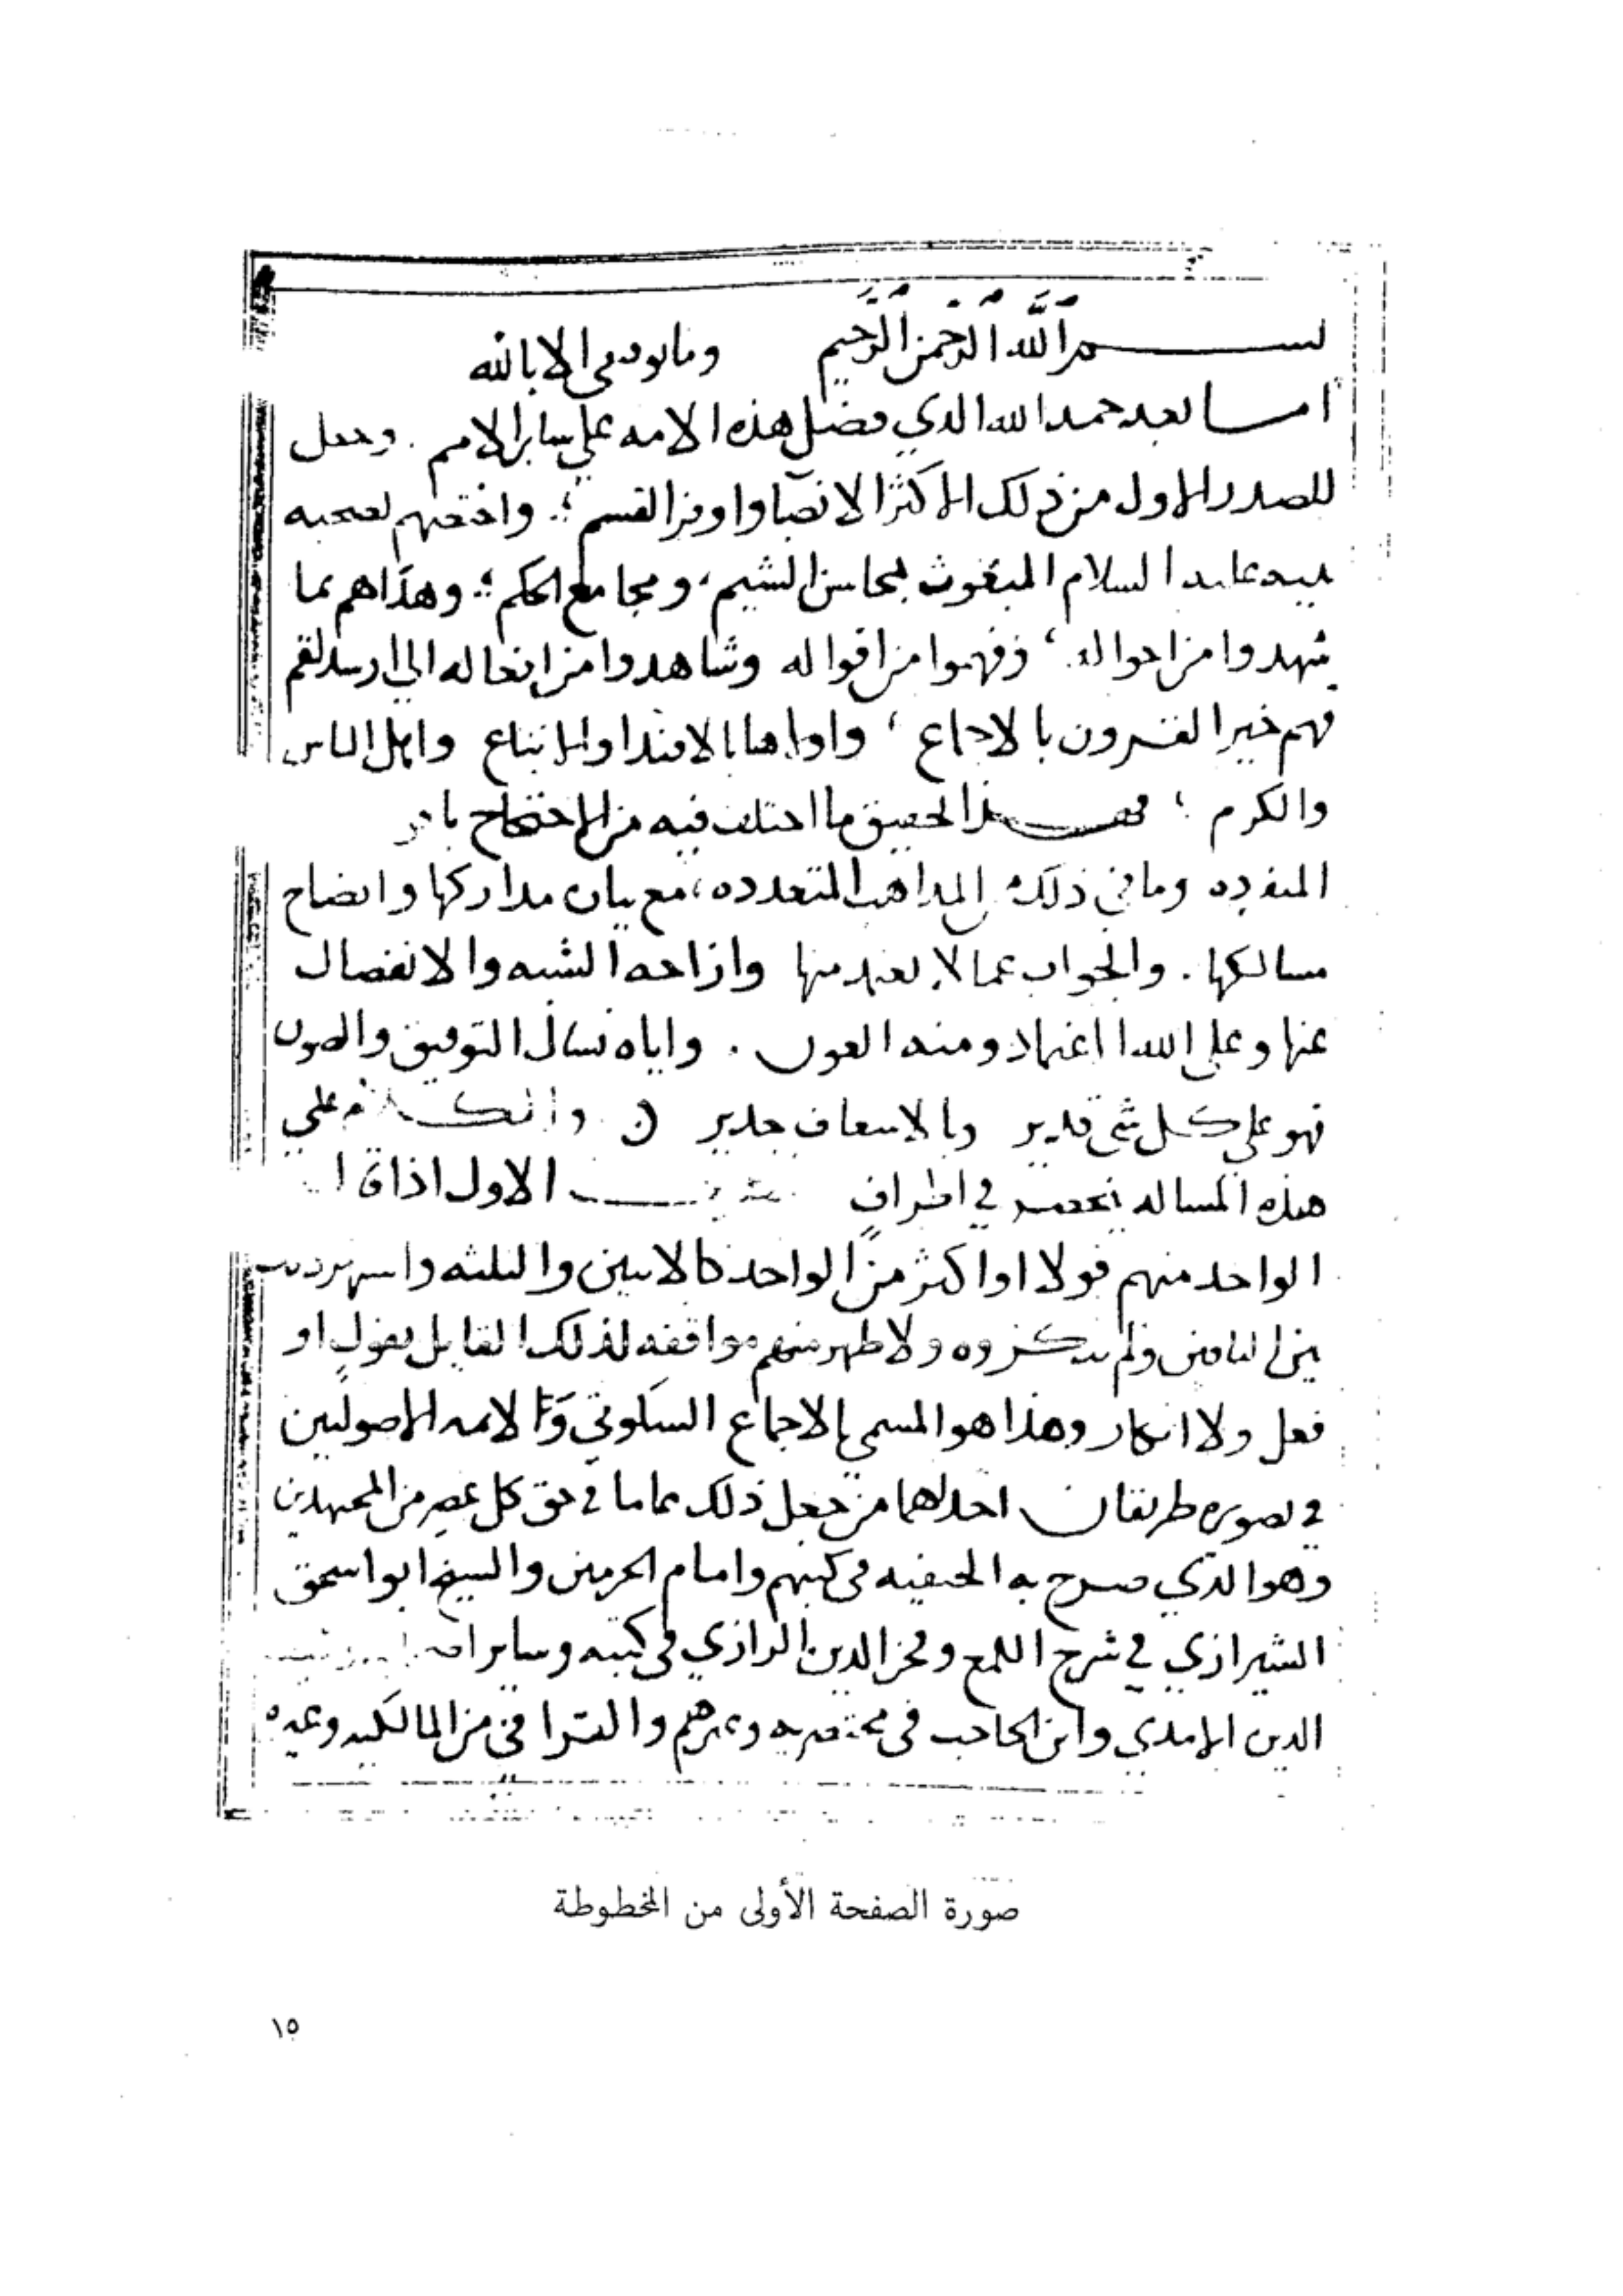 بسم الله الرحمن الرحيم وما توفيقي الا بالله
اما بعد حمد الله الذي فضل هذه الامه علي ساير الامم . وجعل
للصدر الاول من ذلك الاكثر الانصبا واوفر القسم . واختصهم لصحبه
نبيه عليه السلام المبعوث بمحاسن الشيم ، ومجامع الحكم . وهداهم بما
شهدوا من احواله ، وفهموا من اقواله وشاهدوا من افعاله الي ارسد لقم
فهم خير القرون بالاجماع ، واولاها بالاقتدا والاتباع واهل الباس
والكرم ، فهذا تحقيق ما اختلف فيه من الاحتجاج
المنفرده وما في ذلك المذاهب المتعدده ، مع بيان مداركها وايضاح
مسالكها . والجواب عما لا يعتمد منها وازاحه الشبه والانفصال
عنها وعلي الله اعتماد ومنه العون . واياه نسال التوفيق والصون
فهو علي كل شي قدير وبالاسعاف جدير والكلام علي
هذه المساله ينحصر في اطراف الاول اذا قال
الواحد منهم قولا او اكثر من الواحد كالاثنين والثلثه واشتهر ذلك
بين الباقين ولم ينكروه ولا ظهر منهم موافقه لذلك القايل بقول او
فعل ولا انكار وهذا هو المسمي بالاجماع السكوتي وللايمه الاصوليين
في تصويره طريقان احدهما من جعل ذلك عاما في حق كل عصر من المجتهدين
وهو الذي صرح به الحنفيه في كتبهم وامام الحرمين والشيخ ابو اسحق
الشيرازي في شرح اللمع وفخر الدين الرازي في كتبه وساير
الدين الامدي وابن الحاجب في مختصريه وغيرهم والقرافي من المالكيه وغيره
صورة الصفحة الأولى من المخطوطة
١٥